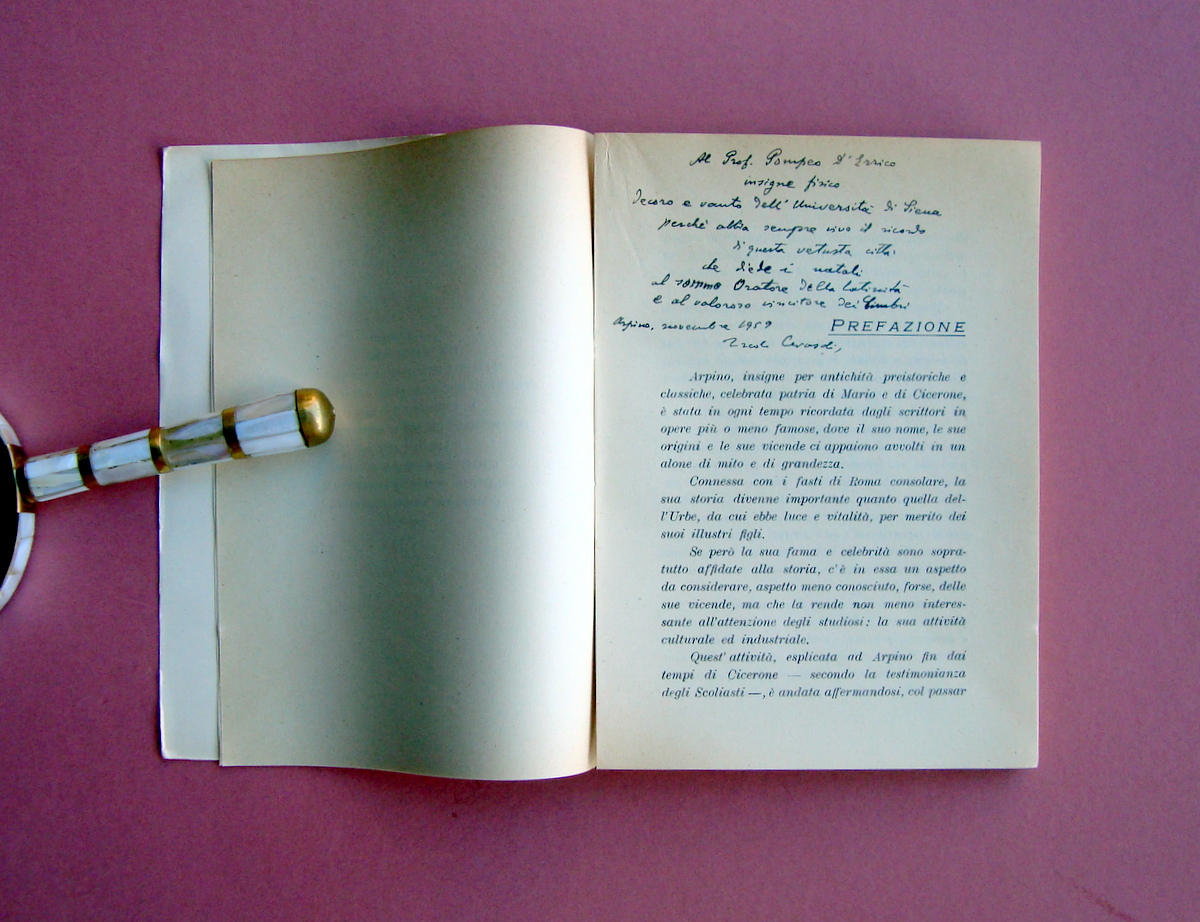 Al Prof. Pompeo D'Errico
insigne fisico
decoro e vanto dell'Università di Siena
perché abbia sempre vivo il ricordo
di questa vetusta città
che diede i natali
al sommo Oratore della latinità
e al valoroso vincitore dei Cimbri
Arpino, novembre 1959
PREFAZIONE
Arpino, insigne per antichità preistoriche e
classiche, celebrata patria di Mario e di Cicerone,
è stata in ogni tempo ricordata dagli scrittori in
opere più o meno famose, dove il suo nome, le sue
origini e le sue vicende ci appaiono avvolti in un
alone di mito e di grandezza.
Connessa con i fasti di Roma consolare, la
sua storia divenne importante quanto quella del-
l'Urbe, da cui ebbe luce e vitalità, per merito dei
suoi illustri figli.
Se però la sua fama e celebrità sono sopra-
tutto affidate alla storia, c'è in essa un aspetto
da considerare, aspetto meno conosciuto, forse, delle
sue vicende, ma che la rende non meno interes-
sante all'attenzione degli studiosi: la sua attività
culturale ed industriale.
Quest'attività, esplicata ad Arpino fin dai
tempi di Cicerone — secondo la testimonianza
degli Scoliasti —, è andata affermandosi, col passar